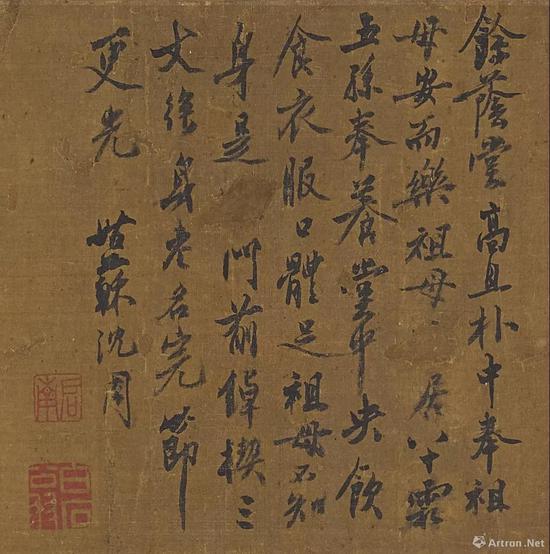 餘蔭堂高且朴中奉祖
母安而樂祖母〻居八十霜
五孫奉養堂中央飲
食衣服口體足祖母不知
身是 門前倬楔三
丈徐身老名完節
更光 姑蘇沈周
啟南
白石翁
Artron.Net